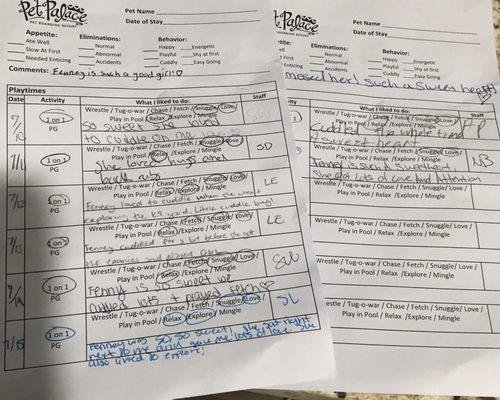 Pet Palace
PET BOARDING RESORT
Pet Name
Date of Stay
Appetite:
Ate Well
Slow At First
Needed Enticing
Eliminations:
Normal
Abnormal
Accidents
Behavior:
Happy
Energetic
Playful
Shy
Cuddly
Easy Going
Comments: Fenney is such a good girl!
Playtimes
Date
Activity
What I liked to do:
Staff
7/10
1 on 1
PG
Wrestle / Tug-o-war / Chase / Fetch / Snuggle / Love /
Play in Pool / Relax / Explore / Mingle
So sweet, she loved
to cuddle on my
7/11
1 on 1
PG
Wrestle / Tug-o-war / Chase / Fetch / Snuggle / Love /
Play in Pool / Relax / Explore / Mingle
She loved hugs and
back rubs
SD
7/12
1 on 1
PG
Wrestle / Tug-o-war / Chase / Fetch / Snuggle / Love /
Play in Pool / Relax / Explore / Mingle
Fenney loved to cuddle when we weren't
exploring the K9 yard. Little cuddle bug!
LE
7/13
1 on 1
PG
Wrestle / Tug-o-war / Chase / Fetch / Snuggle / Love /
Play in Pool / Relax / Explore / Mingle
Fenney cuddled for a bit before she got
the zoomies and played fetch
LE
7/14
1 on 1
PG
Wrestle / Tug-o-war / Chase / Fetch / Snuggle / Love /
Play in Pool / Relax / Explore / Mingle
Fenney is so sweet we
cuddled lots + played fetch
7/15
1 on 1
PG
Wrestle / Tug-o-war / Chase / Fetch / Snuggle / Love /
Play in Pool / Relax / Explore / Mingle
Fenney was so so sweet! She sat right
next to me and gave me lots of love. She
also liked to explore!
SL
Pet Palace
PET BOARDING RESORT
Pet Name
Date of Stay
Appetite:
Enticing
Eliminations:
Normal
Abnormal
Accidents
Behavior:
Happy
Energetic
Playful
Shy
Cuddly
Easy Going
missed her! Such a sweet heart!
What I liked to do:
Staff
Wrestle / Tug-o-war / Chase / Fetch / Snuggle/ Love /
Play in Pool / Relax /Explore / Mingle
Cuddled the whole time
sweet heart
Wrestle / Tug-o-war / Chase / Fetch / Snuggle/ Love /
Play in Pool / Relax /Explore / Mingle
Fenney is such a sweetheart
She got lots of love and attention
NB
Wrestle / Tug-o-war / Chase / Fetch / Snuggle/ Love /
Play in Pool / Relax /Explore / Mingle
Wrestle / Tug-o-war / Chase / Fetch / Snuggle/ Love /
Play in Pool / Relax /Explore / Mingle
Wrestle / Tug-o-war / Chase / Fetch / Snuggle/ Love /
Play in Pool / Relax /Explore / Mingle
Tug-o-war / Chase / Fetch / Snuggle/ Love /
Play in Pool / Relax /Explore / Mingle